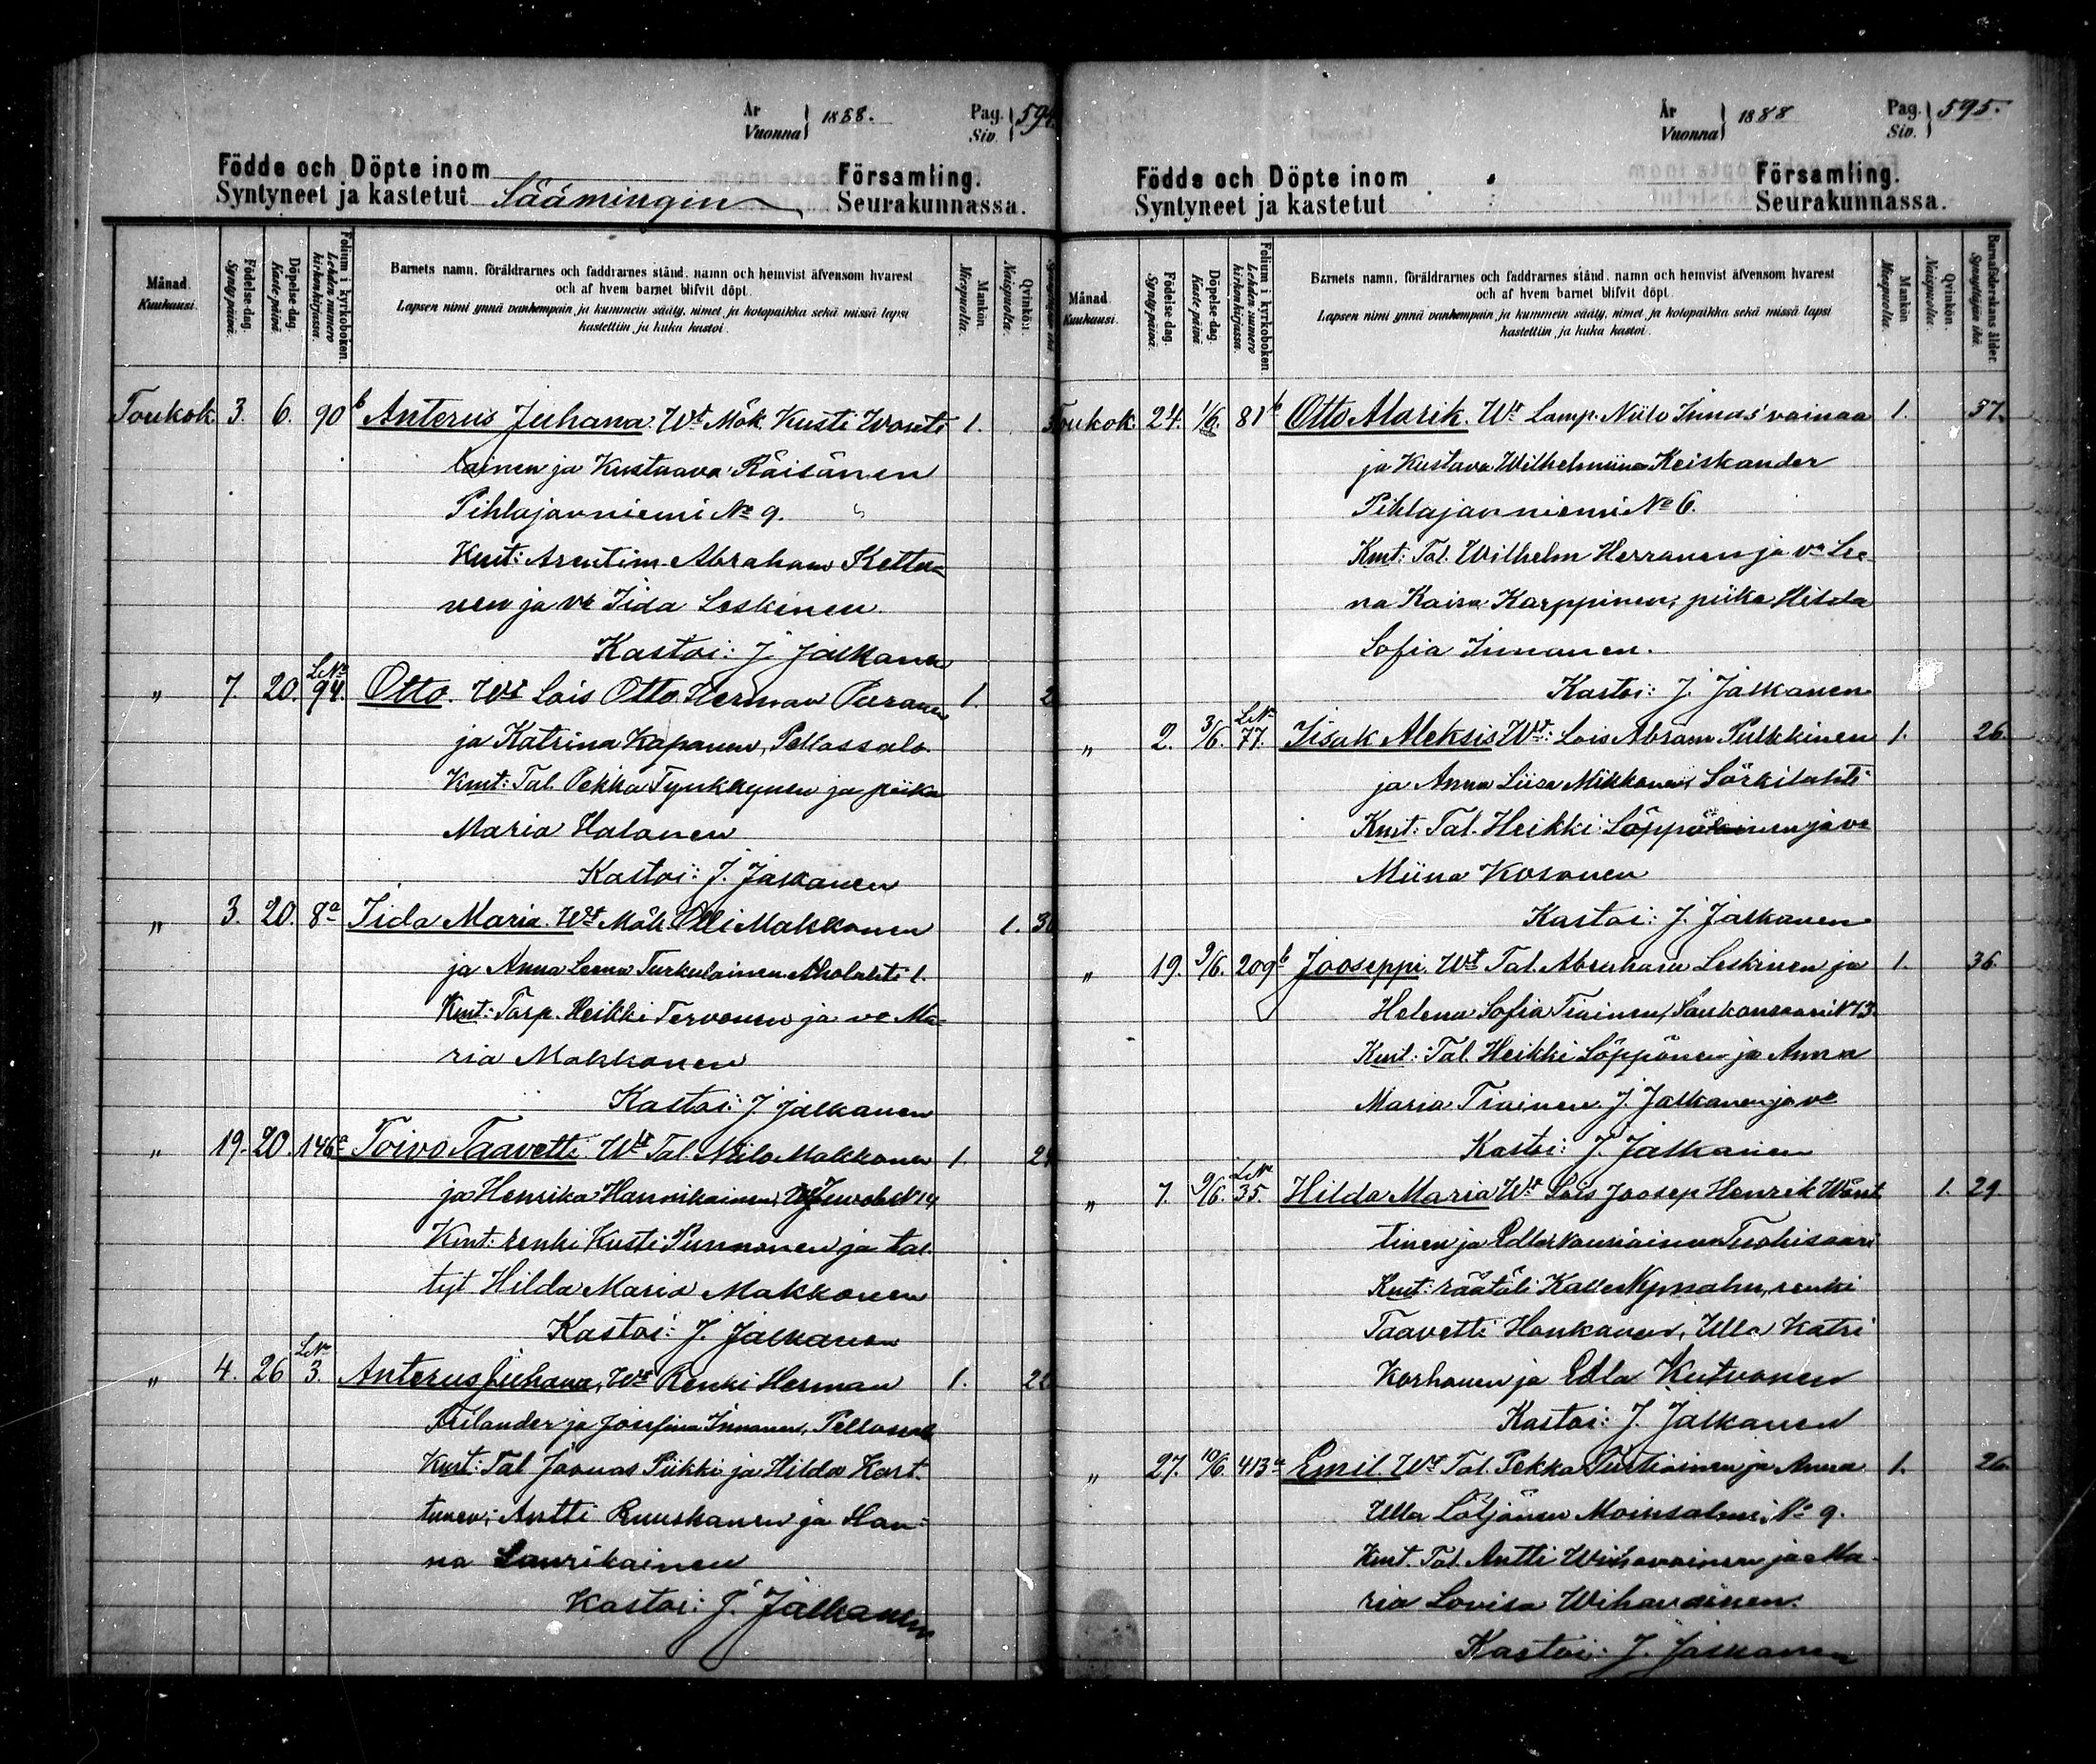 År
Vuonna 1888.
Pag.
Siv. 594.
Födde och Döpte inom
Syntyneet ja kastetut Säämingin
Församling.
Seurakunnassa.
Månad.
Kuukausi.
Födelse-dag.
Synty-päivä.
Döpelse-dag.
Kaste-päivä.
Folium i kyrkoboken.
Lehden numero
kirkonkirjassa.
Barnets namn, föräldrarnes och faddrarnes stånd, namn och hemvist äfvensom hvarest
och af hvem barnet blifvit döpt.
Lapsen nimi ynnä vanhempain ja kummein sääty, nimet ja kotopaikka sekä missä lapsi
kastettiin ja kuka kastoi.
Mankön.
Miespuolta.
Qvinkön.
Naispuolta.
Toukok. 3. 6. 90 b Anterus Juhana. Wt Mök. Kusti Wänti 1.
lainen ja Kustaava Räisänen
Pihlajanniemi No 9.
Kmt: Arentim. Abraham Kettu=
nen ja vo Iida Leskinen
Kastoi: J. Jalkanen
" 7 20. LNo 94. Otto. Wt Lois Otto Herman Puranen 1.
ja Katrina Kapanen, Pellossalo.
Kmt: Tal. Pekka Tynkkynen ja piika
Maria Halonen
Kastoi: J. Jalkanen
" 3. 20. 8a Iida Maria. Wt Mök. Olli Makkonen 1. 3
ja Anna Leena Turkulainen Aholahti 1.
Kmt: Torp. Heikki Tervonen ja vo Ma
ria Makkonen
Kastoi: J. Jalkanen
" 19. 20. 146a Toivo Taavetti. Wt Tal. Niilo Makkonen 1. 2
ja Henrika Hannikainen,
Kmt: renki Kusti Punnonen ja tal.
tyt Hilda Maria Makkonen
Kastoi: J. Jalkanen
" 4. 26 LNo 3. Anterus Juhana, Wt Renki Herman 1. 2
Frilander ja Josefina Innanen, Pellossalo
Kmt: Tal Joonas Piikki ja Hilda Kart
tunen; Antti Ruuskanen ja Han=
na Laurikainen
Kastoi: J. Jalkanen
År
Vuonna 1888
Pag.
Siv. 595.
Födde och Döpte inom
Syntyneet ja kastetut
Församling.
Seurakunnassa.
Månad.
Kuukausi.
Födelse-dag.
Synty-päivä.
Döpelse-dag.
Kaste-päivä.
Folium i kyrkoboken.
Lehden numero
kirkonkirjassa.
Barnets namn, föräldrarnes och faddrarnes stånd, namn och hemvist äfvensom hvarest
och af hvem barnet blifvit döpt.
Lapsen nimi ynnä vanhempain ja kummein sääty, nimet ja kotopaikka sekä missä lapsi
kastettiin ja kuka kastoi.
Mankön
Miespuolta.
Qvinkön.
Naispuolta.
Barnaföderskans ålder.
Synnyttäjän ikä.
Toukok. 24. 1/6. 81 b Otto Alarik. Wt Lamp. Niilo Innas' vainaa 1. 37.
ja Kustava Wilhelmiina Keiskander
Pihlajanniemi No 6.
Kmt: Tal. Wilhelm Herranen ja vo Lee
na Kaisa Karppinen; piika Hilda
Sofia Innanen.
Kastoi: J. Jalkanen
" 2. 3/6. LNo 77. Iisak Aleksis Wt: Lois Abram Pulkkinen 1. 26.
ja Anna Liisa Mikkonen, Särkilahti
Kmt: Tal. Heikki Löppö nen ja vo
Miina Kosonen
Kastoi: J. Jalkanen
" 19. 9/6. 209 b Jooseppi. Wt Tal. Abraham Leskinen ja 1. 36.
Helena Sofia Tiainen, Laukansaari N 13
Kmt: Tal. Heikki Löppönen ja Anna
Maria Tiainen J. Jalkanen ja vo
Kastoi: J. Jalkanen
" 7. 9/6. LNo 35. Hilda Maria Wt Lois Joosep Henrik Wänt 1. 29
tinen ja Edla Tuohisaari
Kmt: räätäli Kalle renki
Taavetti Honkanen, Ulla Katri
Korhonen ja Edla Kutvonen
Kastoi: J. Jalkanen
" 27. 10/6. 413a Emil. Wt Tal. Pekka Turtiainen ja Anna 1. 26
Ulla Löljönen Moinsalmi No 9.
Kmt. Tal. Antti Wihavainen ja Ma
ria Lovisa Wihavainen.
Kastoi: J. Jalkanen